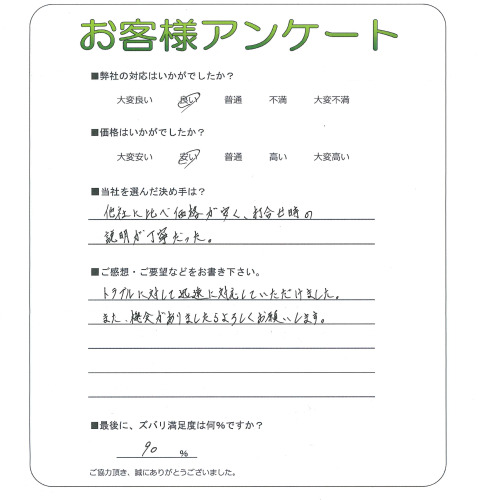 お客様アンケート
■弊社の対応はいかがでしたか？
大変良い 良い 普通 不満 大変不満
■価格はいかがでしたか？
大変安い 安い 普通 高い 大変高い
■当社を選んだ決め手は？
他社に比べ価格が安く、打合せ時の
説明が丁寧だった。
■ご感想・ご要望などをお書き下さい。
トラブルに対して迅速に対応していただけました。
また、機会がありましたらよろしくお願いします。
■最後に、ズバリ満足度は何%ですか？
90 %
ご協力頂き、誠にありがとうございました。